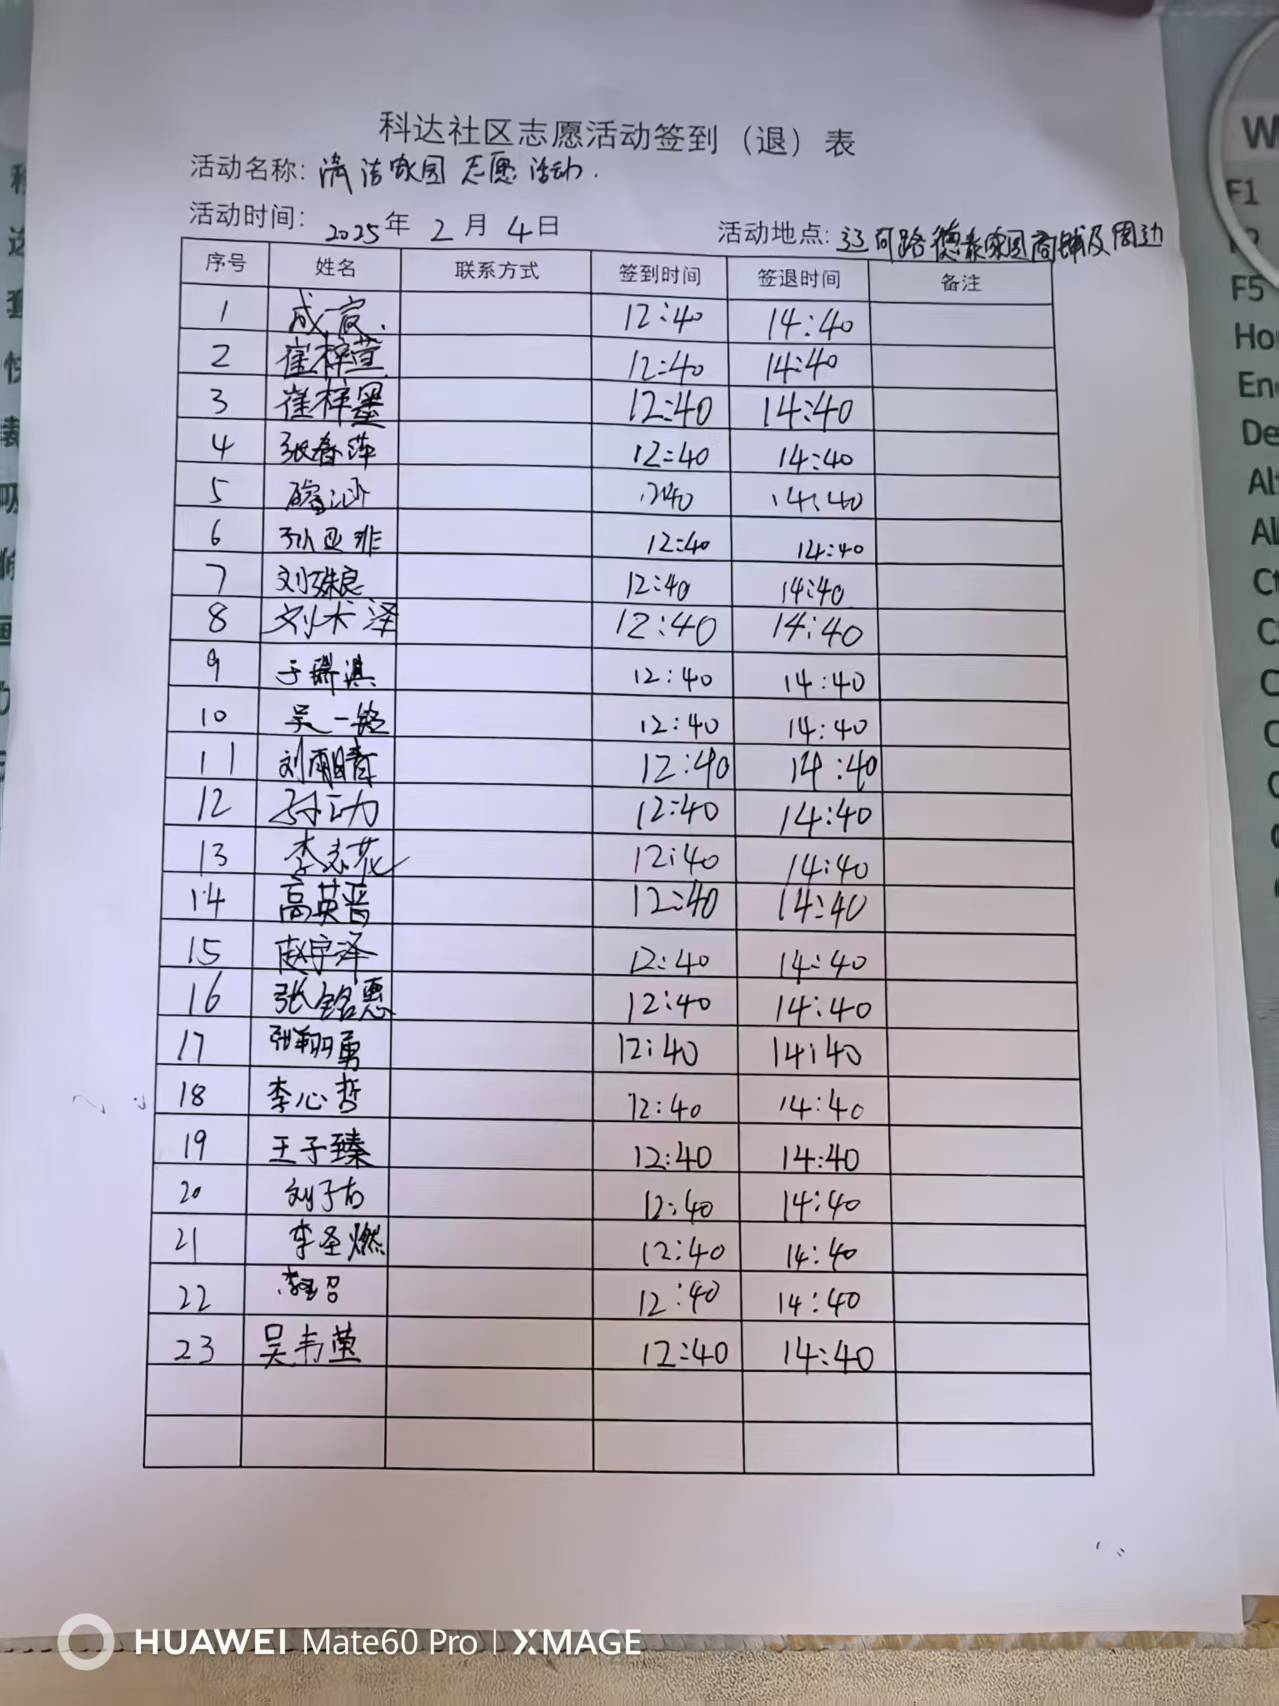 科达社区志愿活动签到（退）表
活动名称: 清洁家园 志愿活动.
活动时间: 2025年 2月 4日 活动地点: 辽河路德泰家园商铺及周边
序号 姓名 联系方式 签到时间 签退时间 备注
1 12:40 14:40
2 崔梓萱 12:40 14:40
3 崔梓墨 12:40 14:40
4 张春萍 12:40 14:40
5 12:40 14:40
6 孙亚非 12:40 14:40
7 刘殊良 12:40 14:40
8 刘术泽 12:40 14:40
9 于瑞淇 12:40 14:40
10 吴一铭 12:40 14:40
11 刘雨晴 12:40 14:40
12 12:40 14:40
13 李志花 12:40 14:40
14 高英晋 12:40 14:40
15 赵宇泽 12:40 14:40
16 张铭惠 12:40 14:40
17 张翔勇 12:40 14:40
18 李心哲 12:40 14:40
19 王子臻 12:40 14:40
20 刘子 12:40 14:40
21 李圣燃 12:40 14:40
22 12:40 14:40
23 吴韦莹 12:40 14:40
W
F1
F5
HUAWEI Mate60 Pro | XMAGE